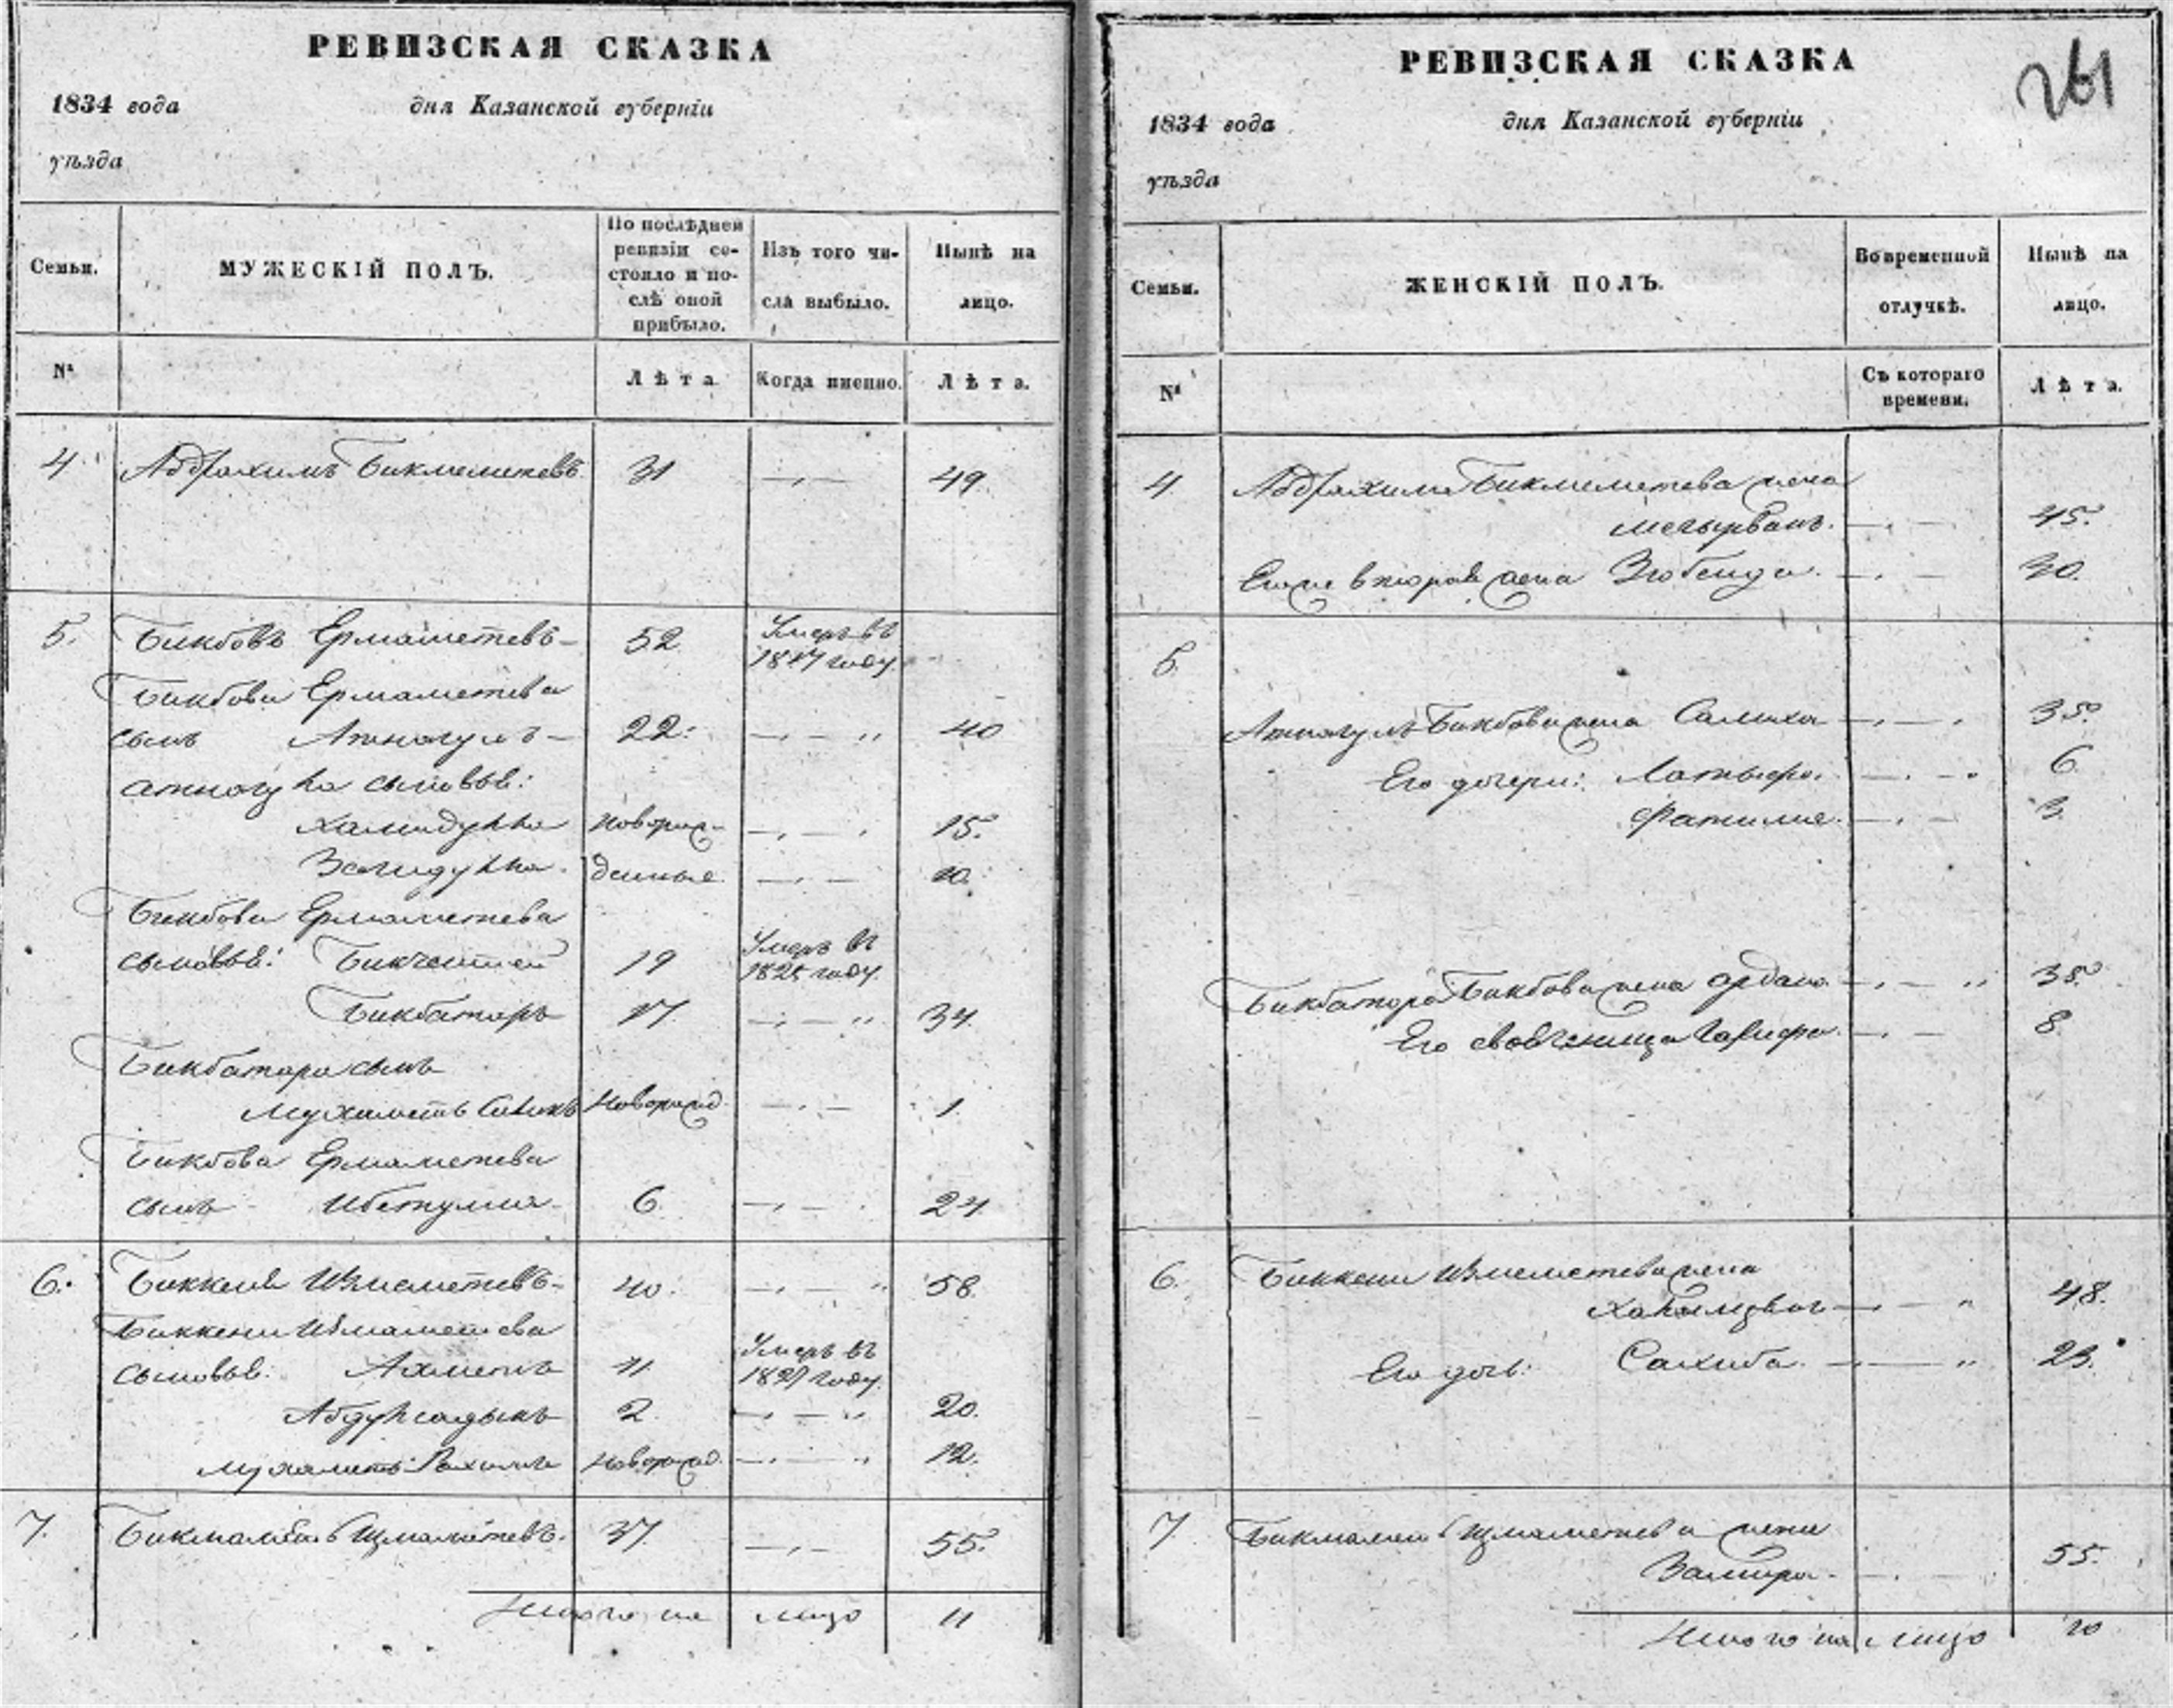 РЕВИЗСКАЯ СКАЗКА
1834 года дня Казанской губерніи
уѣзда
Семьи. МУЖЕСКІЙ ПОЛЪ. По послѣдней ревизіи состояло и послѣ оной прибыло. Изъ того числа выбыло. Нынѣ на лицо.
№ Лѣта Когда именно. Лѣта.
4. Абдрахимъ Бикмеметевъ 31 49.
5. Бикбовъ Ермаметевъ 52 Умеръ въ 1817 году.
Бикбова Ермаметева
сынъ Атнагулъ 22. 40
Атнагула сыновья:
Хамидулла новорож- 15.
Загидулла. денные 10.
Бикбова Ермаметева
сыновья: 19 Умеръ въ году.
Бикбатыръ 34
Бикбатыра сынъ
Мухаметь новорожд. 1.
Бикбова Ермаметева
сынъ 6. 24
6. Биккеня Ишмаметевъ 40. 58.
Биккени Ишмаметева
сыновья: Ахметь 11 Умеръ въ году.
Абдулсадыкъ 2. 20.
Мухаметь Рахимъ новорожд. 12.
7. Ишмаметевъ. 37. 55.
Итого на лицо 11
РЕВИЗСКАЯ СКАЗКА 261
1834 года дня Казанской губерніи
уѣзда
Семьи. ЖЕНСКІЙ ПОЛЪ. Во временной отлучкѣ. Нынѣ на лицо.
№ Съ котораго времени. Лѣта.
4. Абдрахима Бикмеметева жена
45.
Его же вторая жена 30.
5.
Атнагула Бикбова жена Салиха 35.
Его дочери: Латыфа. 6
Фатима. 3.
Бикбатыра Бикбова жена 35.
Его 8.
6. Биккени Ишмаметева жена
48.
Его дочь: Сахиба. 23.
7 Ишмаметева жена
Замира. 55.
Итого на лицо 10